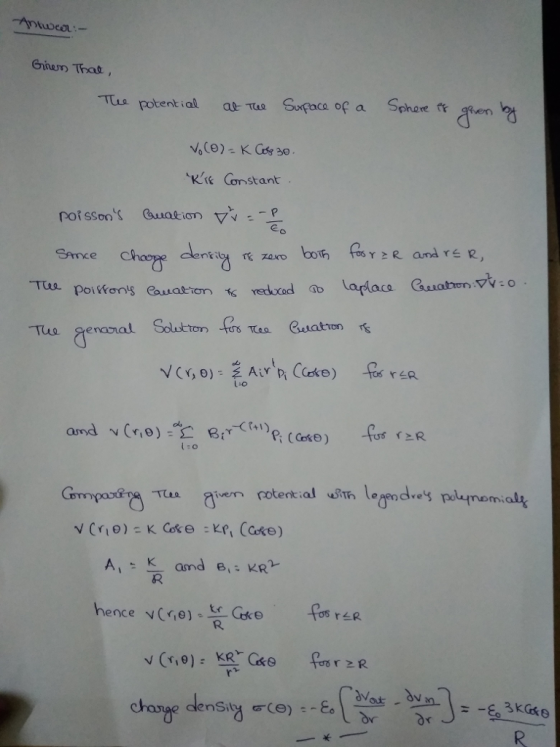 Answer:-
Given That,
The potential at the Surface of a Sphere is given by
V₀(θ) = K Cos3θ.
'K' is Constant.
poisson's Equation ∇²v = -ρ/ε₀
Since charge density is zero both for r ≥ R and r ≤ R,
The poisson's Equation is reduced to laplace Equation. ∇²v = 0.
The genaral Solution for the Equation is
V(r,θ) = ∞Σi=0 Aᵢrⁱpᵢ(Cosθ) for r≤R
and v(r,θ) = ∞Σi=0 Bᵢr⁻⁽ⁱ⁺¹⁾pᵢ(Cosθ) for r≥R
Comparing The given potential with legendre's polynomials
V(r,θ) = K Cosθ = KP₁(Cosθ)
A₁ = K/R and B₁ = KR²
hence V(r,θ) = kr/R Cosθ for r≤R
V(r,θ) = KR²/r² Cosθ for r≥R
charge density σ(θ) = -ε₀[∂Vout/∂r - ∂Vin/∂r] = -ε₀3KCosθ/R
— * —